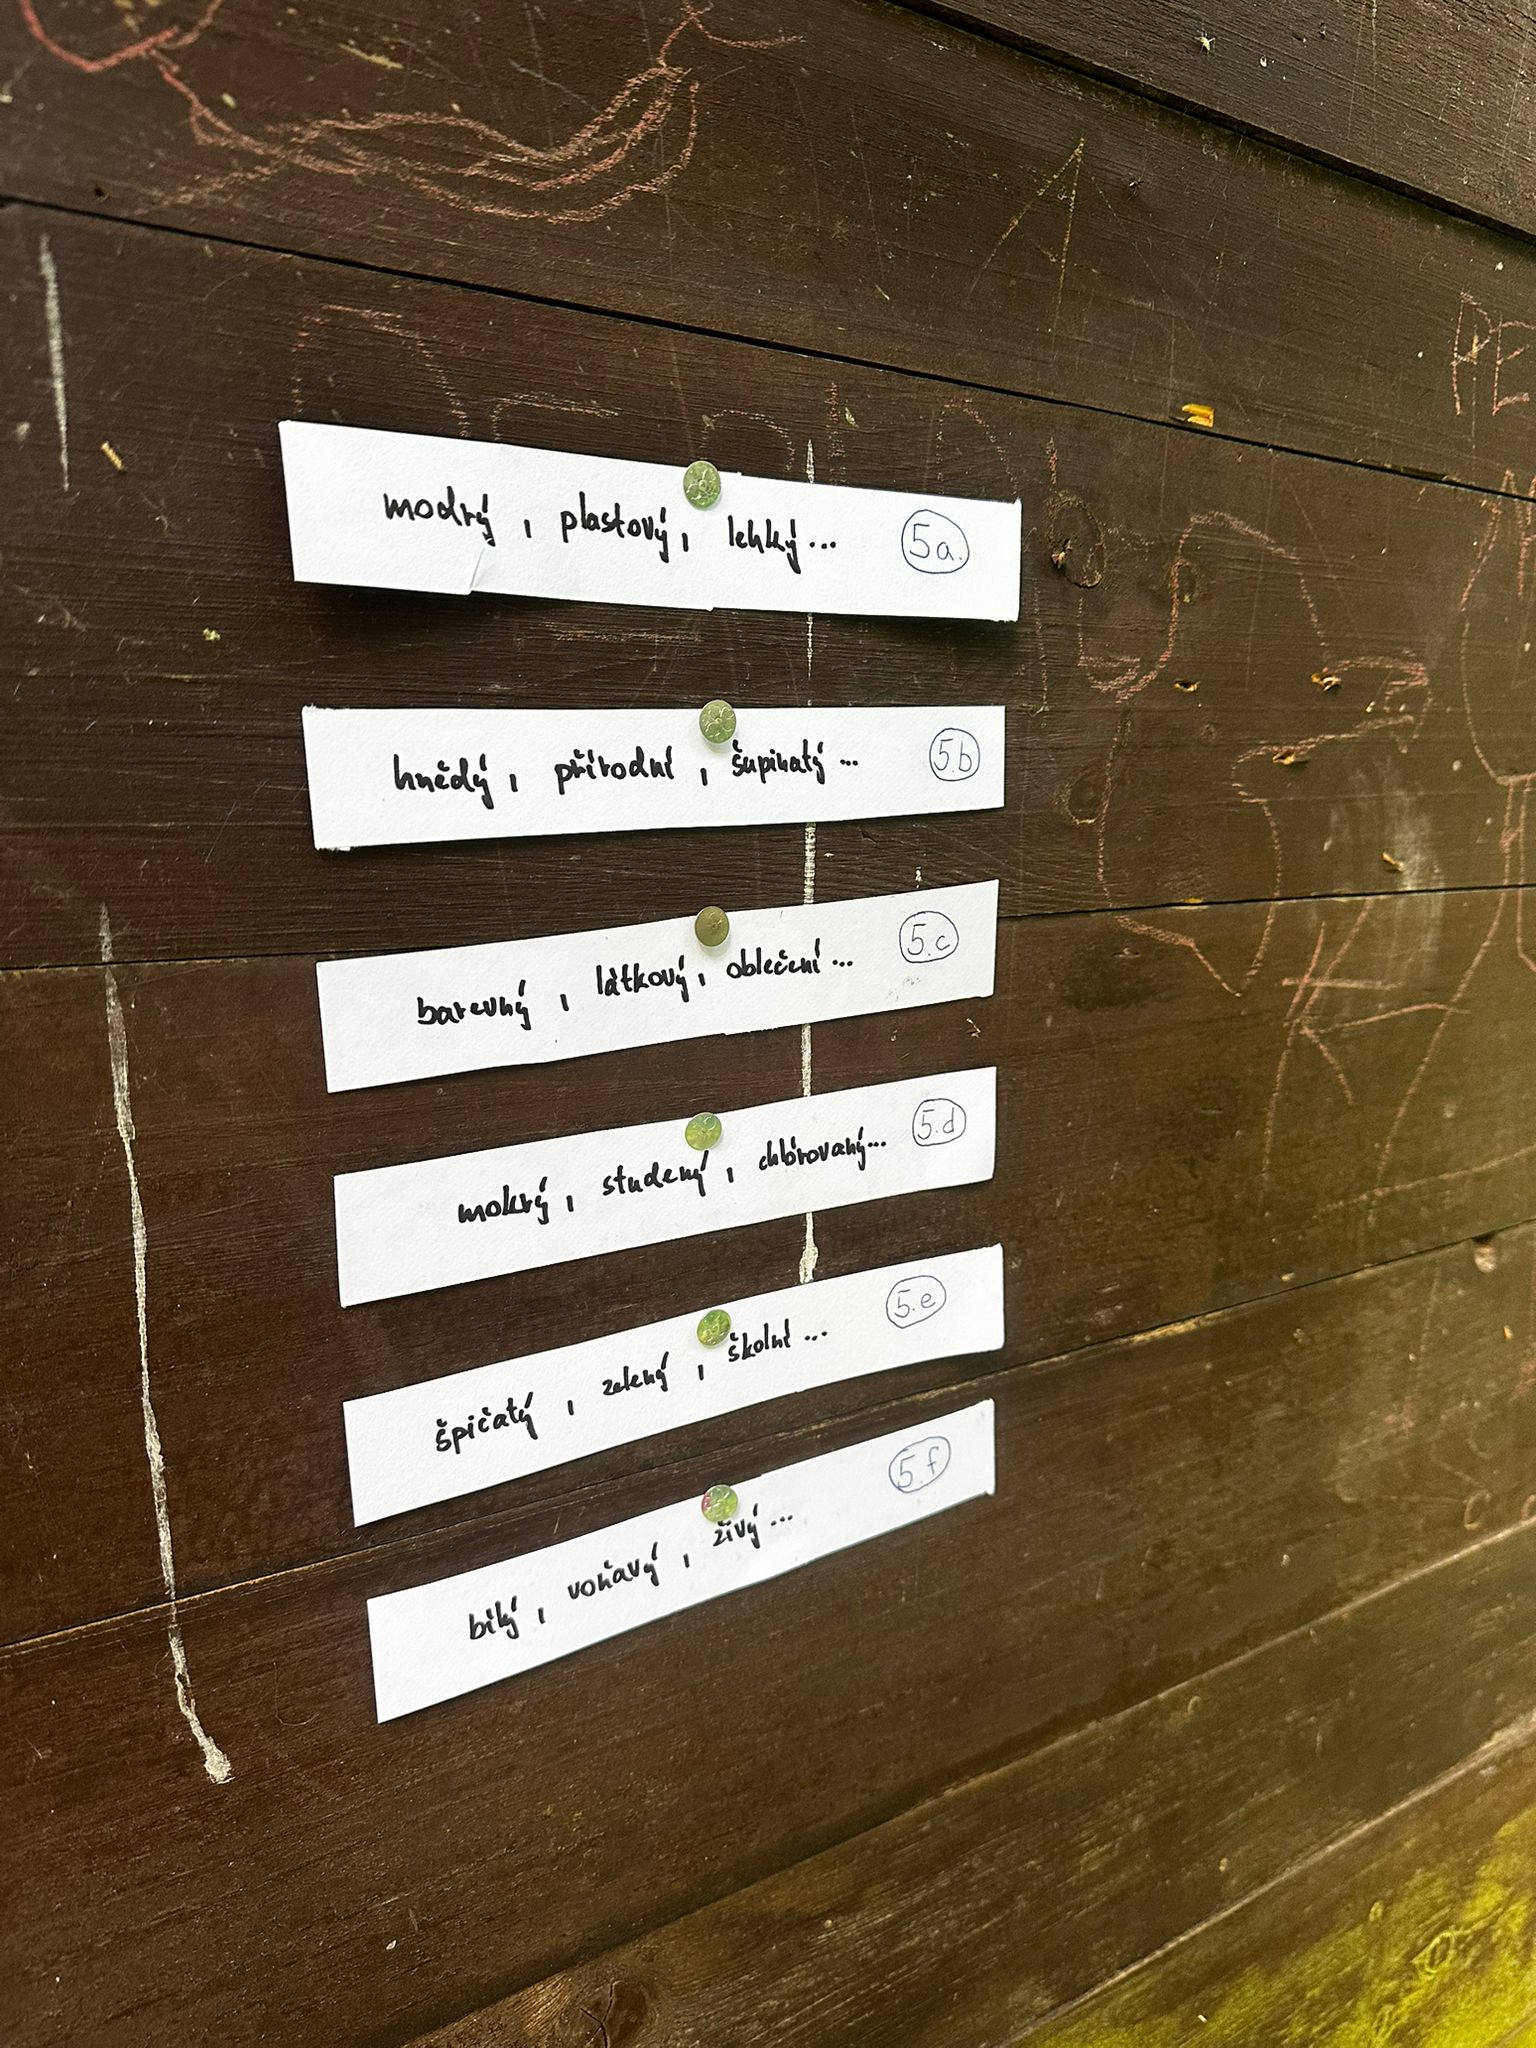 modrý, plastový, lehký... 5a.
hnědý, přírodní, šupinatý... 5.b
barevný, látkový, oblečení... 5.c
mokrý, studený, chlórovaný... 5.d
špičatý, zelený, školní... 5.e
bílý, voňavý, živý... 5.f